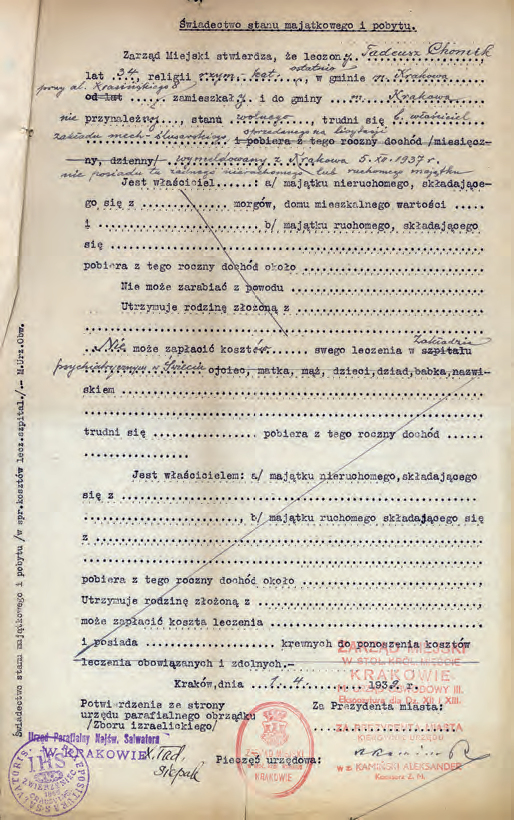 Świadectwo stanu majątkowego i pobytu.
Zarząd Miejski stwierdza, że leczony Tadeusz Chomik
ostatnio
lat 34, religii rzym. kat., w gminie m. Krakowa
przy al. Krasińskiego 8
od lat ..... zamieszkały i do gminy m. Krakowa
nie przynależny, stanu wolnego, trudni się b. właściciel
zakładu mech-ślusarskiego, sprzedanego na licytacji
i pobiera z tego roczny dochód /miesięcz-
ny, dzienny/- wymeldowany z Krakowa 5.XII.1937 r.
nie posiada tu żadnego nieruchomego lub ruchomego majątku
Jest właściciel......: a/ majątku nieruchomego, składające-
go się z ............... morgów, domu mieszkalnego wartości .....
i ............................ b/ majątku ruchomego, składającego
się ..................................................
pobiera z tego roczny dochód około ...........................
Nie może zarabiać z powodu .............................
Utrzymuje rodzinę złożoną z .............................
Zakładzie
Nie może zapłacić kosztów....... swego leczenia w szpitalu
psychiatrycznym w Świeciu ojciec, matka, mąż, dzieci, dziad, babka, nazwi-
skiem ..................................................
trudni się ................. pobiera z tego roczny dochód ......
Jest właścicielem: a/ majątku nieruchomego, składającego
się z ..................................................
......................., b/ majątku ruchomego składającego się
z ..................................................
pobiera z tego roczny dochód około ...........................,
Utrzymuje rodzinę złożoną z ................................,
może zapłacić koszta leczenia ...............................
i posiada ..................... krewnych do ponoszenia kosztów
leczenia obowiązanych i zdolnych.-
Kraków, dnia 1.4. 1939 r.
ZARZĄD MIEJSKI
W STOŁ. KRÓL. MIEŚCIE
KRAKOWIE
Ekspozytura dla Dz. XII i XIII.
Potwierdzenie ze strony
urzędu parafialnego obrządku
/Zboru izraelickiego/
Za Prezydenta miasta:
ZA PREZYDENTA MIASTA
KIEROWNIK URZĘDU
w z. KAMIŃSKI ALEKSANDER
Urząd Parafialny Najśw. Salwatora
W KRAKOWIE
IHS
X. Tad.
Pieczęć urzędowa:
KRAKOWIE
Świadectwo stanu majątkowego i pobytu /w spr. kosztów lecz. szpital./- M.Urz.Obw.